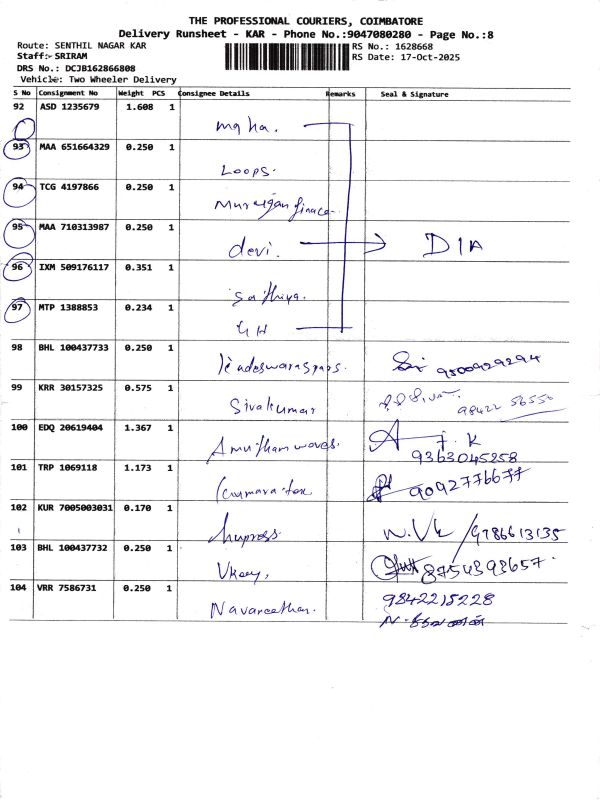 THE PROFESSIONAL COURIERS, COIMBATORE
Delivery Runsheet - KAR - Phone No.:9047080280 - Page No.:8
Route: SENTHIL NAGAR KAR RS No.: 1628668
Staff:- SRIRAM RS Date: 17-Oct-2025
DRS No.: DCJB162866808
Vehicle: Two Wheeler Delivery
S No Consignment No Weight PCS Consignee Details Remarks Seal & Signature
92 ASD 1235679 1.608 1
maha.
93 MAA 651664329 0.250 1
Loops.
94 TCG 4197866 0.250 1
95 MAA 710313987 0.250 1
devi. DIA
96 IXM 509176117 0.351 1
Sathiya.
97 MTP 1388853 0.234 1
98 BHL 100437733 0.250 1
9500929294
99 KRR 30157325 0.575 1
Sivakumar 98422 56550
100 EDQ 20619404 1.367 1
Amutham waves. F. K
9363045258
101 TRP 1069118 1.173 1
9092776677
102 KUR 7005003031 0.170 1
9786613135
103 BHL 100437732 0.250 1
8754398657
104 VRR 7586731 0.250 1
Navaneethan. 9842215228